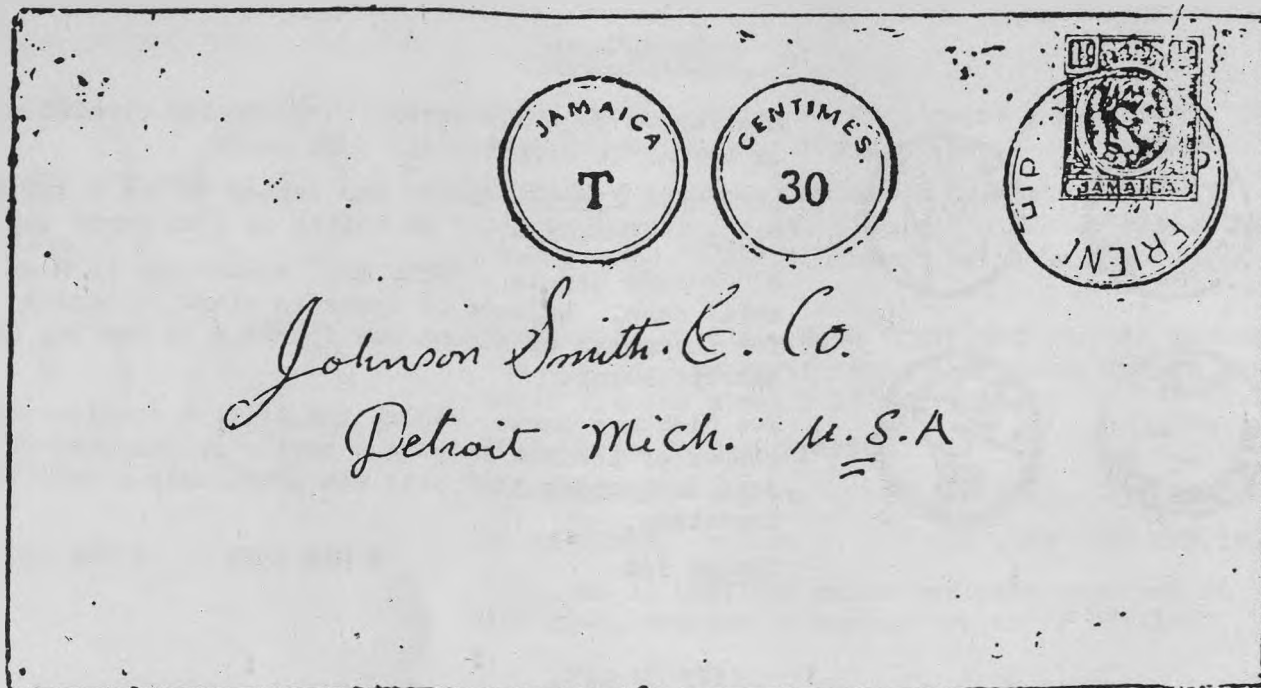 JAMAICA
T
CENTIMES.
30
JAMAICA
Johnson Smith. & . Co.
Detroit Mich. U.S.A